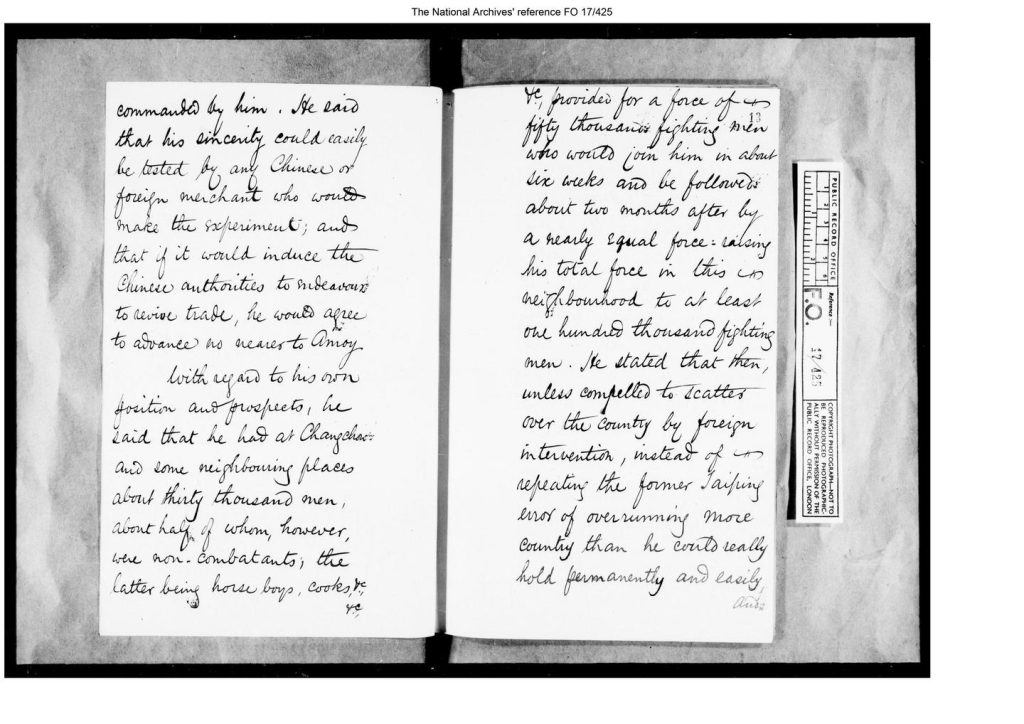 The National Archives' reference FO 17/425
commanded by him. He said
that his sincerity could easily
be tested by any Chinese or
foreign merchant who would
make the experiment; and
that if it would induce the
Chinese authorities to endeavour
to revive trade, he would agree
to advance no nearer to Amoy.
With regard to his own
position and prospects, he
said that he had at Changchow
and some neighbouring places
about thirty thousand men,
about half of whom, however,
were non-combatants; the
latter being horse boys, cooks, &c,
&c,
&c, provided for a force of
13
fifty thousand fighting men
who would join him in about
six weeks and be followed
about two months after by
a nearly equal force: raising
his total force in this
neighbourhood to at least
one hundred thousand fighting
men. He stated that then,
unless compelled to scatter
over the country by foreign
intervention, instead of
repeating the former Taiping
error of overrunning more
country than he could really
hold permanently and easily,
and
PUBLIC RECORD OFFICE
1 2 3 4 5 6
Reference:-
F.O. 17/425
COPYRIGHT PHOTOGRAPH—NOT TO
BE REPRODUCED PHOTOGRAPHIC-
ALLY WITHOUT PERMISSION OF THE
PUBLIC RECORD OFFICE, LONDON